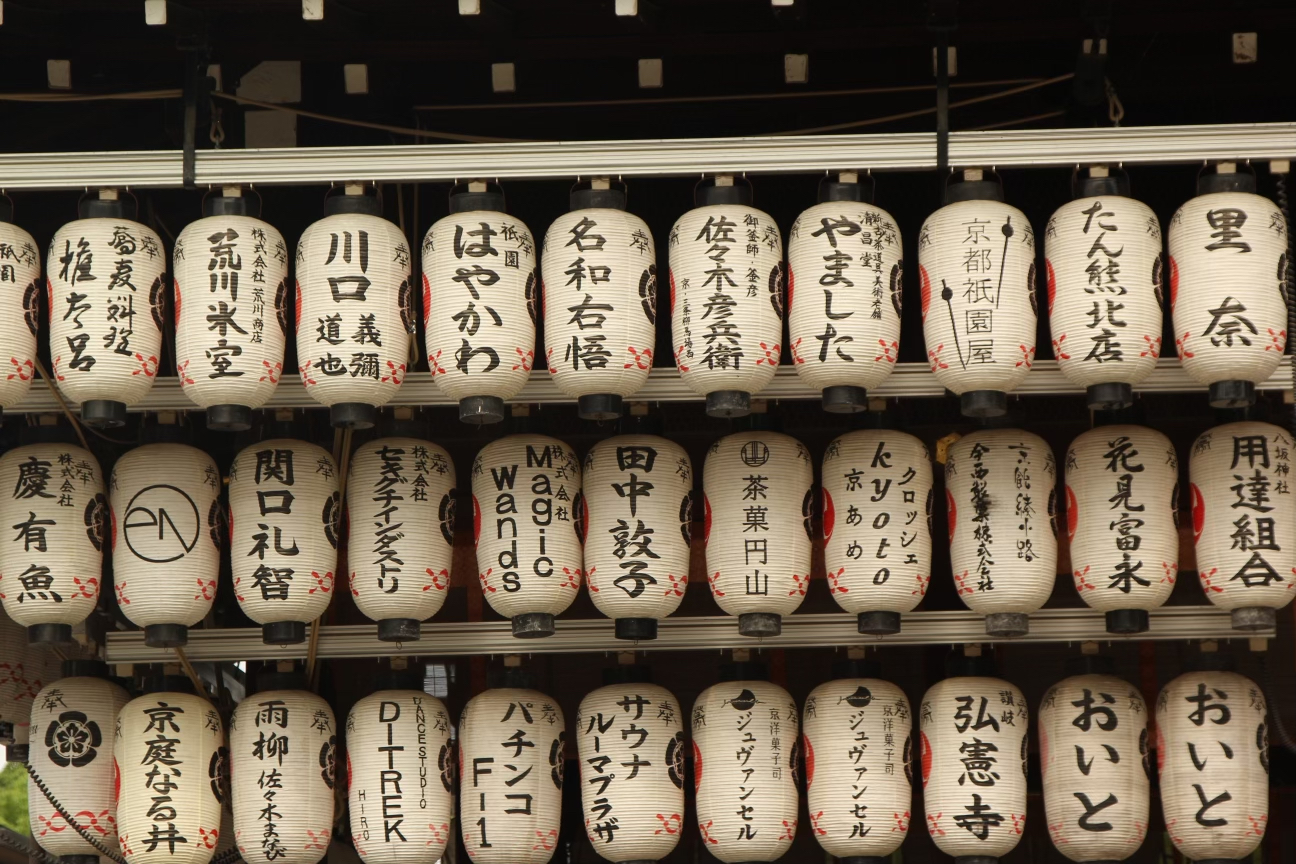 祇園
蕎麦料理
権太呂
株式会社 荒川商店
荒川氷室
川口
義彌
道也
祇園
はやかわ
名和右悟
御釜師・釜彦
佐々木彦兵衛
清昌堂
やました
京都祇園屋
たん熊北店
里奈
株式会社
慶有魚
en
関口礼智
株式会社
セキグチインダストリ
株式会社
Magic
wands
田中敦子
茶菓円山
クロッシェ
kyoto
京あめ
京都綾小路
花見冨永
八坂神社
用達組合
奉
京庭なる井
雨柳
佐々木まなび
DANCESTUDIO
DITREK
HIRO
パチンコ
F-1
サウナ
ルーマプラザ
京洋菓子司
ジュヴァンセル
京洋菓子司
ジュヴァンセル
讃岐
弘憲寺
おいと
おいと